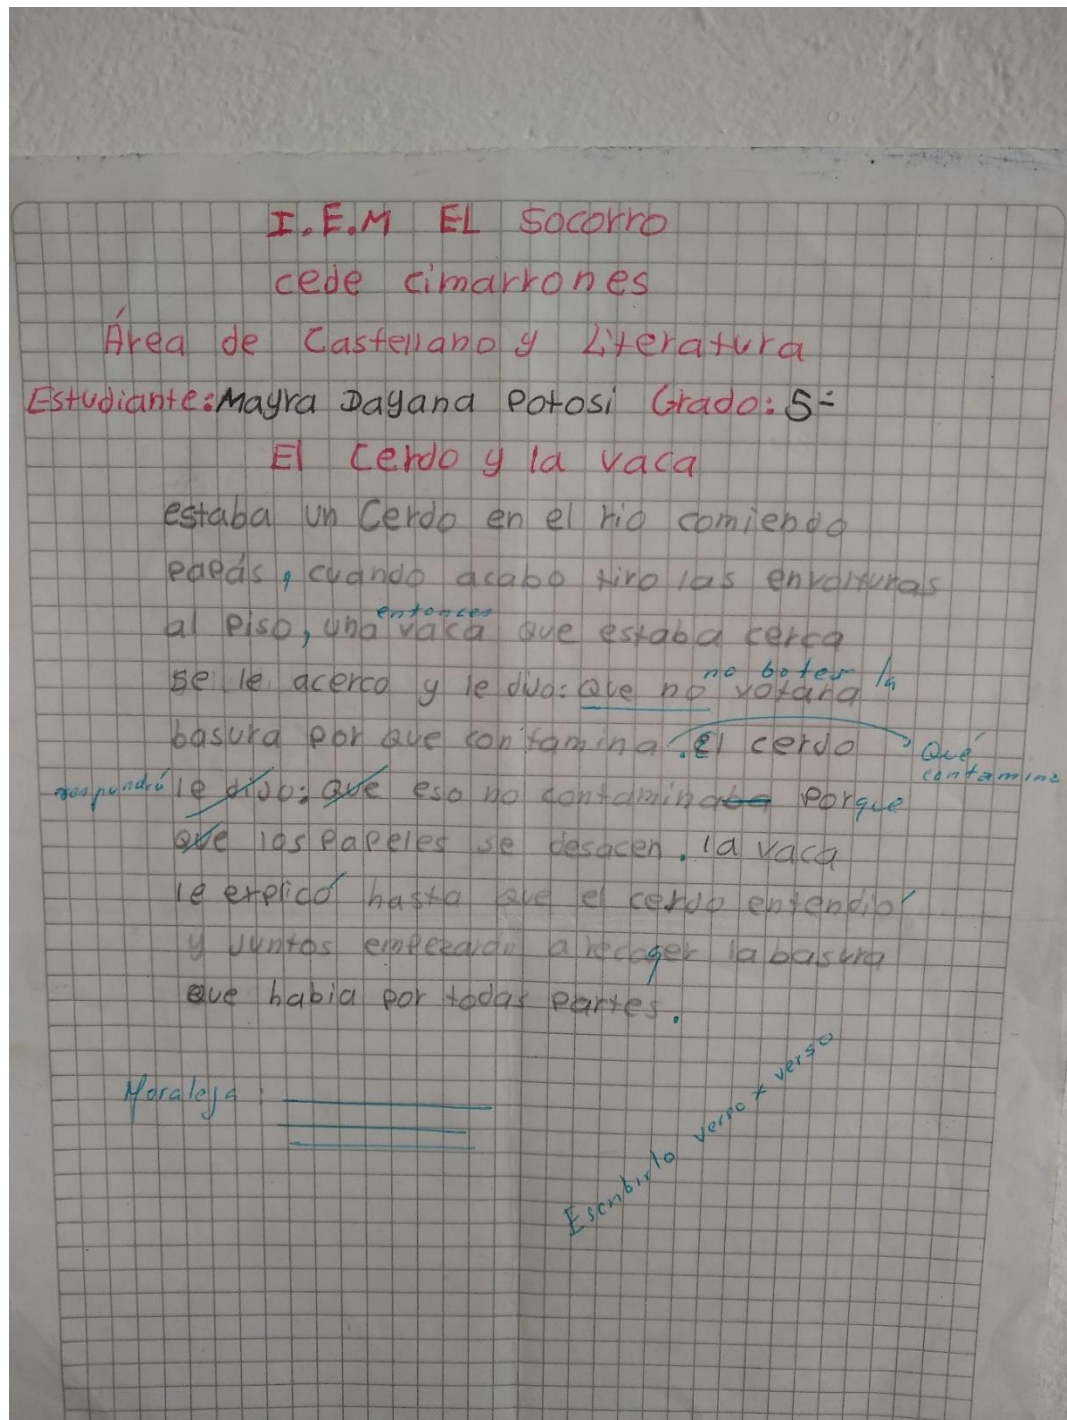 I.E.M EL Socorro
cede cimarrones
Área de Castellano y Literatura
Estudiante: Mayra Dayana Potosi Grado: 5-
El Cerdo y la vaca
estaba un Cerdo en el rio comiendo
papás, cuando acabo tiro las envolturas
entonces
al piso, una vaca que estaba cerca
no botes la
se le acerco y le dijo: que no votara
basura por que contamina. El cerdo
Qué
contamina
respondió le dijo: que eso no contaminaba porque
que los papeles se desacen. la vaca
le explicó hasta que el cerdo entendió
y juntos a recoger la basura
que habia por todas partes.
Moraleja:
Escribirlo verso x verso